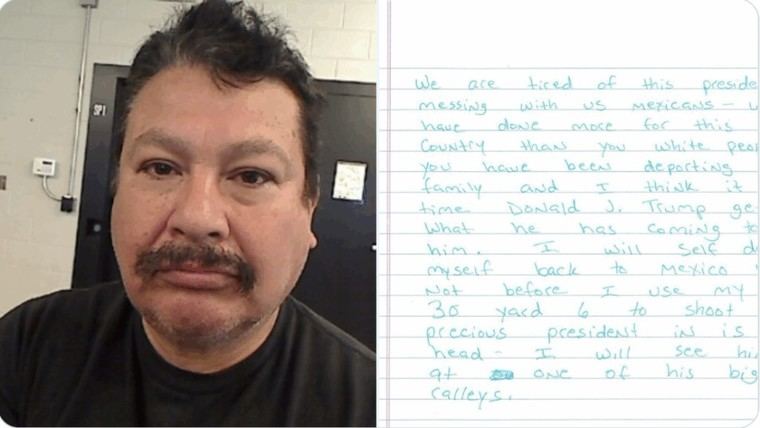 SPI
We are tired of this preside
messing with us mexicans – w
have done more for this
Country than you white peo
you have been deporting
family and I think it
time Donald J. Trump ge
What he has coming to
him. I will self d
myself back to Mexico
Not before I use my
30 yard 6 to shoot
precious president in is
head – I will see hi
at one of his big
ralleys.